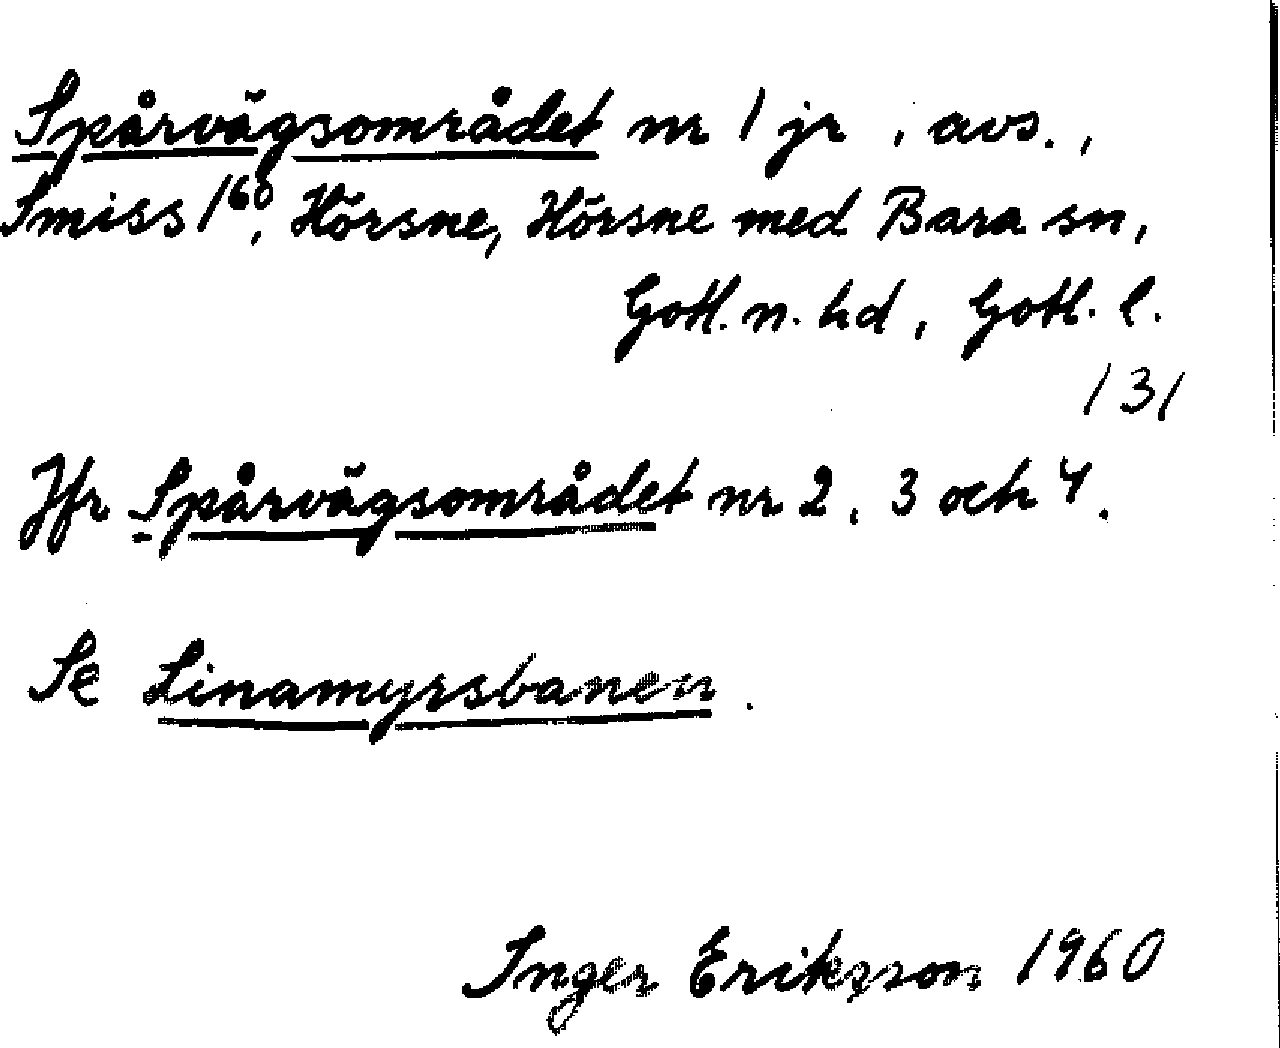 Spårvägsområdet nr 1 jr , avs. ,
Smiss 1⁶⁰, Hörsne, Hörsne med Bara sn,
Gotl. n. hd, Gotl. l.
131
Jfr Spårvägsområdet nr 2, 3 och 4.
Se Linamyrsbanen.
Inger Eriksson 1960